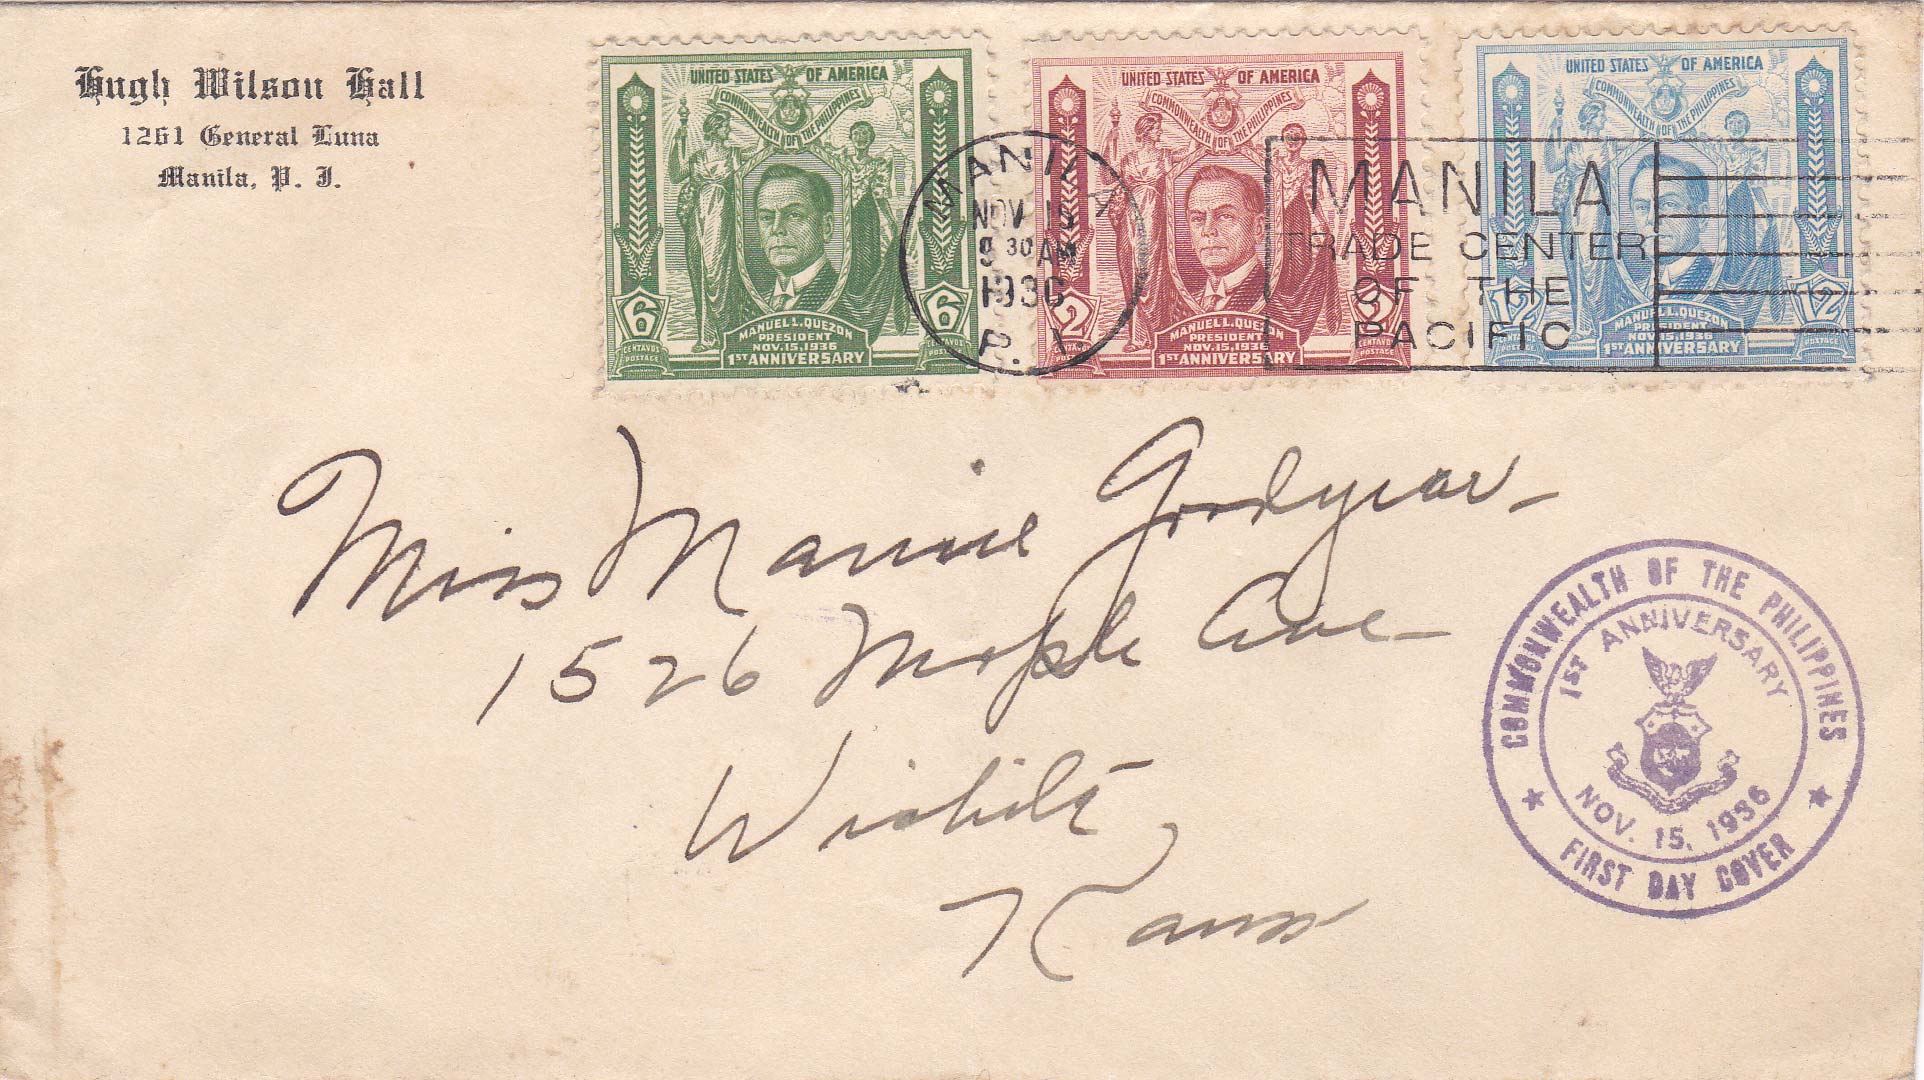 Hugh Wilson Hall
1261 General Luna
Manila, P. I.
UNITED STATES OF AMERICA
COMMONWEALTH OF THE PHILIPPINES
6 6
CENTAVOS POSTAGE
CENTAVOS POSTAGE
MANUEL L. QUEZON
PRESIDENT
NOV. 15, 1936
1ST ANNIVERSARY
UNITED STATES OF AMERICA
COMMONWEALTH OF THE PHILIPPINES
2 2
CENTAVOS POSTAGE
MANUEL L. QUEZON
PRESIDENT
NOV. 15, 1936
1ST ANNIVERSARY
UNITED STATES OF AMERICA
COMMONWEALTH OF THE PHILIPPINES
12 12
MANUEL L. QUEZON
PRESIDENT
NOV. 15, 1936
1ST ANNIVERSARY
MANILA
NOV 15
9 30 AM
1936
P. I.
MANILA
TRADE CENTER
OF THE
PACIFIC
Miss Mannie Goodyear
1526 Maple Ave
Wichita,
Kans
COMMONWEALTH OF THE PHILIPPINES
1ST ANNIVERSARY
NOV. 15, 1936
FIRST DAY COVER